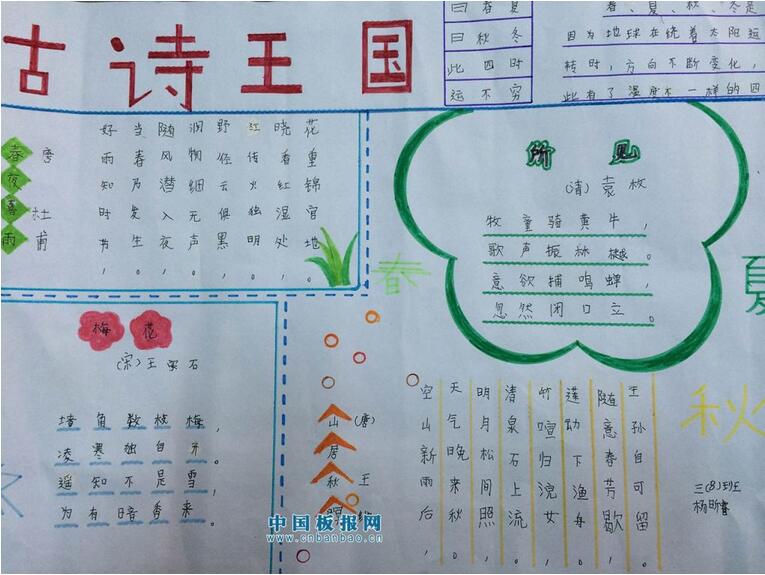 古诗王国
曰春夏
曰秋冬
此四时
运不穷
春、夏、秋、冬是
因为地球在绕着太阳运
转时，方向不断变化，
此有了温度不一样的四
春夜喜雨
唐
杜甫
好雨知时节，
当春乃发生。
随风潜入夜，
润物细无声。
野径云俱黑，
江传火独明。
晓看红湿处，
花重锦官地。
所见
(清)袁枚
牧童骑黄牛，
歌声振林樾。
意欲捕鸣蝉，
忽然闭口立。
春
夏
秋
梅花
(宋)王安石
墙角数枝梅，
凌寒独自开。
遥知不是雪，
为有暗香来。
山居秋暝
(唐)
王
空山新雨后，
天气晚来秋。
明月松间照，
清泉石上流。
竹喧归浣女，
莲动下渔舟。
随意春芳歇，
王孙自可留。
三(8)班王
杨昕
中国板报网
www.cnbanbao.cn